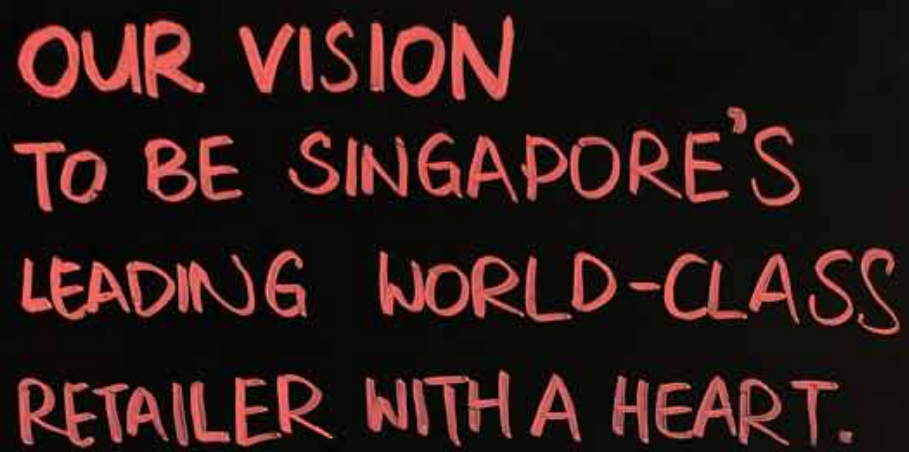 OUR VISION
TO BE SINGAPORE'S
LEADING WORLD-CLASS
RETAILER WITH A HEART.